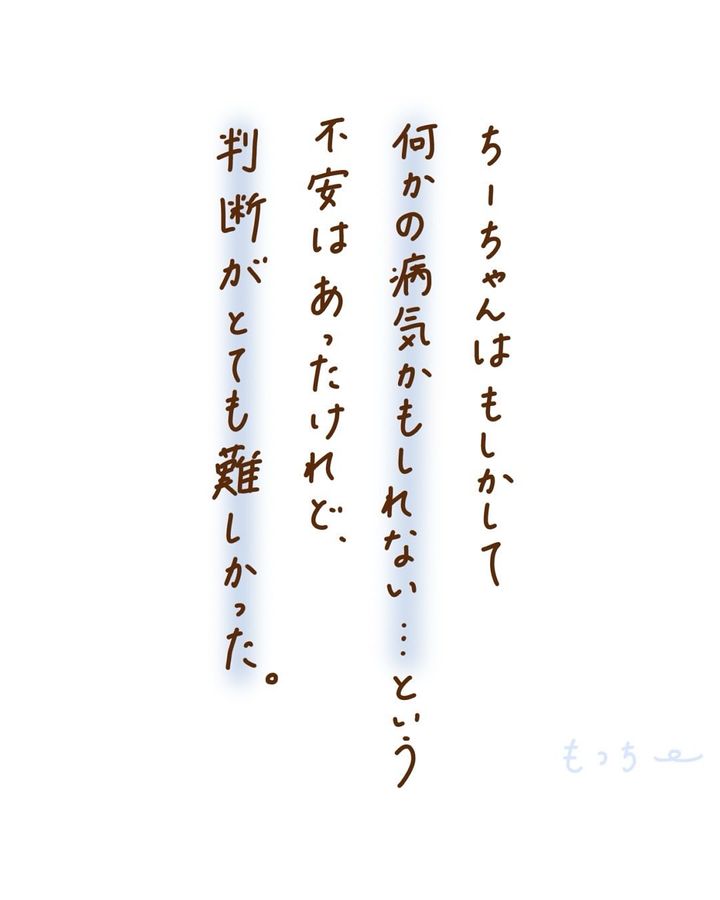 ちーちゃんはもしかして
何かの病気かもしれない…という
不安はあったけれど、
判断がとても難しかった。
もっちー